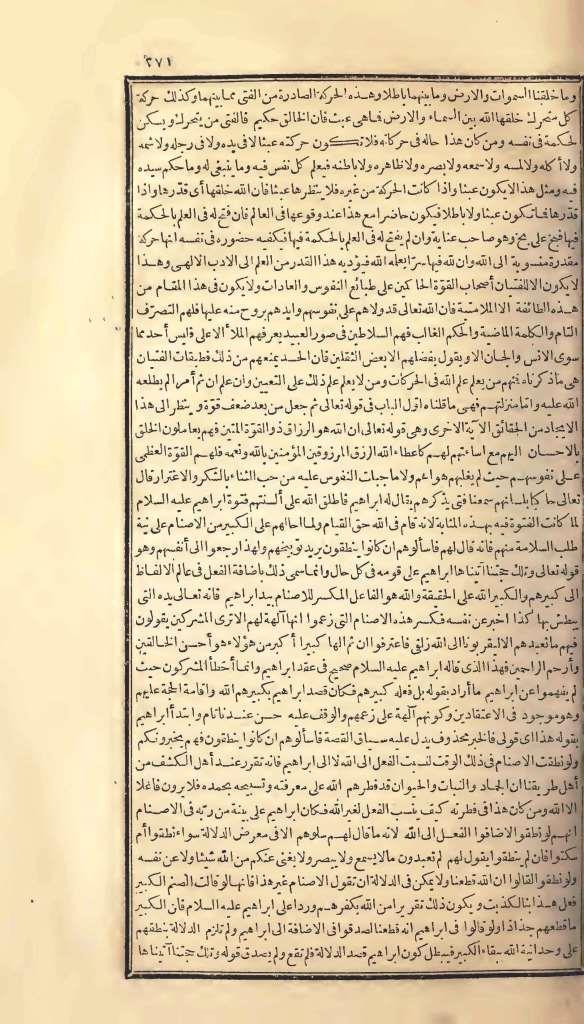 ٣٧١
وما خلقنا السموات والارض وما بينهما باطلا وهذه الحركة الصادرة من الفتى مما بينهما وكذلك حركة
كل متحرك خلقها الله بين السماء والارض فما هى عبث فان الخالق حكيم فالفتى من يتحرك ويسكن
لحكمة فى نفسه ومن كان هذا حاله فى حركاته فلا تكون حركته عبثا لا فى يده ولا فى رجله ولا شمه
ولا أكله ولا لمسه ولا سمعه ولا بصره ولا ظاهره ولا باطنه فيعلم كل نفس فيه وما ينبغى له وما حكم سيده
فيه ومثل هذا لا يكون عبثا واذا كانت الحركة من غيره فلا ينظرها عبثا فان الله خلقها أى قدّرها واذا
قدّرها فما تكون عبثا ولا باطلا فيكون حاضرا مع هذا عند وقوعها فى العالم فان فتح له فى العلم بالحكمة
فيها فبخ على بخ وهو صاحب عناية وان لم يفتح له فى العلم بالحكمة فيها فيكفيه حضوره فى نفسه انها حركة
مقدرة منسوبة الى الله وان لله فيها سرّا يعلمه الله فيؤديه هذا القدر من العلم الى الادب الالهى وهذا
لا يكون الا للفتيان أصحاب القوّة الحاكمين على طبائع النفوس والعادات ولا يكون فى هذا المقام من
هذه الطائفة الا الملامتية فان الله تعالى قد ولاهم على نفوسهم وايدهم بروح منه عليها فلهم التصرّف
التام والكلمة الماضية والحكم الغالب فهم السلاطين فى صور العبيد يعرفهم الملأ الاعلى فليس أحد مما
سوى الانس والجان الا ويقول بفضلهم الا بعض الثقلين فان الحسد يمنعهم من ذلك فطبقات الفتيان
هى ما ذكرناه فمنهم من يعلم علم الله فى الحركات ومن لا يعلم علم ذلك على التعيين وان علم ان ثم أمرا لم يطلعه
الله عليه وأما منزلتهم فهى ما قلناه أول الباب فى قوله تعالى ثم جعل من بعد ضعف قوة وينظر الى هذا
الايجاد من الحقائق الآية الاخرى وهى قوله تعالى ان الله هو الرزاق ذو القوة المتين فهم يعاملون الخلق
بالاحسان اليهم مع اساءتهم لهم كاعطاء الله الرزق المرزوقين المؤمنين بالله ونعمه فلهم القوة العظمى
على نفوسهم حيث لم يغلبهم هواهم ولا ما جبلت النفوس عليه من حب الثناء بالشكر والاغترار قال
تعالى حاكيا بلسانهم سمعنا فتى يذكرهم يقال له ابراهيم فاطلق الله على ألسنتهم فتوّة ابراهيم عليه السلام
لما كانت الفتوّة فيه بهذه المثابة لانه قام فى الله حق القيام ولما أحالهم على الكبير من الاصنام على نية
طلب السلامة منهم فانه قال لهم فاسألوهم ان كانوا ينطقون يريد توبيخهم ولهذا رجعوا الى أنفسهم وهو
قوله تعالى وتلك حجتنا آتيناها ابراهيم على قومه فى كل حال وانما سمى ذلك باضافة الفعل فى عالم الالفاظ
الى كبيرهم والكبير الله على الحقيقة والله هو الفاعل المكسر للاصنام بيد ابراهيم فانه تعالى يده التى
يبطش بها كذا أخبر عن نفسه فكسر هذه الاصنام التى زعموا انها آلهة لهم ألا ترى المشركين يقولون
فيهم ما نعبدهم الا ليقربونا الى الله زلفى فاعترفوا ان ثم الها كبيرا أكبر من هؤلاء هو أحسن الخالقين
وأرحم الراحمين فهذا الذى قاله ابراهيم عليه السلام صحيح فى عقد ابراهيم وانما أخطأ المشركون حيث
لم يفهموا عن ابراهيم ما أراد بقوله بل فعله كبيرهم فكان قصد ابراهيم بكبيرهم الله واقامة الحجة عليهم
وهو موجود فى الاعتقادين وكونهم آلهة على زعمهم والوقف عليه حسن عندنا تام وابتدأ ابراهيم
بقوله هذا أى قولى فالخبر محذوف يدل عليه سياق القصة فاسألوهم ان كانوا ينطقون فهم يخبرونكم
ولو نطقت الاصنام فى ذلك الوقت لنسبت الفعل الى الله لا الى ابراهيم فانه تقرر عند أهل الكشف من
أهل طريقنا ان الجماد والنبات والحيوان قد فطرهم الله على معرفته وتسبيحه بحمده فلا يرون فاعلا
الا الله ومن كان هذا فى فطرته كيف ينسب الفعل لغير الله فكان ابراهيم على بينة من ربّه فى الاصنام
انهم لو نطقوا لاضافوا الفعل الى الله لانه ما قال لهم سلوهم الا فى معرض الدلالة سواء نطقوا أم
سكتوا فان لم ينطقوا يقول لهم لم تعبدون ما لا يسمع ولا يبصر ولا يغنى عنكم من الله شيئا ولا عن نفسه
ولو نطقوا لقالوا ان الله قطعنا ولا يمكن فى الدلالة ان تقول الاصنام غير هذا فانها لو قالت الصنم الكبير
فعل هذا بنا لكذبت ويكون ذلك تقريرا من الله بكفرهم وردا على ابراهيم عليه السلام فان الكبير
ما قطعهم جذاذا ولو قالوا فى ابراهيم انه قطعنا لصدقوا فى الاضافة الى ابراهيم ولم تلزم الدلالة بنطقهم
على وحدانية الله ببقاء الكبير فيبطل كون ابراهيم قصد الدلالة فلم تقع ولم يصدق قوله وتلك حجتنا آتيناها